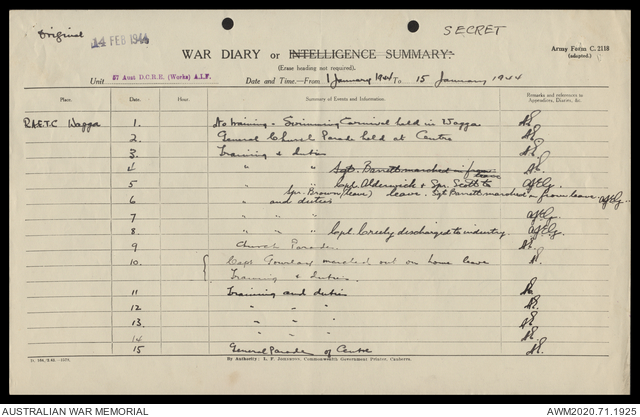 Original
14 FEB 1944
SECRET
WAR DIARY or INTELLIGENCE SUMMARY.
Army Form C. 2118
(adapted.)
(Erase heading not required).
Unit 57 Aust D.C.R.E. (Works) A.I.F. Date and Time.—From 1 January 1944 To 15 January 1944
Place. Date. Hour. Summary of Events and Information. Remarks and references to Appendices, Diaries, &c.
R.A.E.T.C. Wagga 1. No training - Swimming Carnival held in Wagga
2. General Church Parade held at Centre
3. Training & duties
4 " " Sgt. Barrett marched in from leave
5 " " Cpl. Alderwick & Spr. Scott to leave. Sgt Barrett marched in from leave
Spr. Brown (leave)
6 " and duties
7 " " "
8 " " " Cpl. Creely discharged to industry.
9 Church Parade.
10. Capt Gowland marched out on home leave
Training & Duties.
11 Training and duties
12 " " "
13. " " "
14 " " "
15 General Parade of Centre
By Authority: L. F. Johnston, Commonwealth Government Printer, Canberra.
AUSTRALIAN WAR MEMORIAL
AWM2020.71.1925